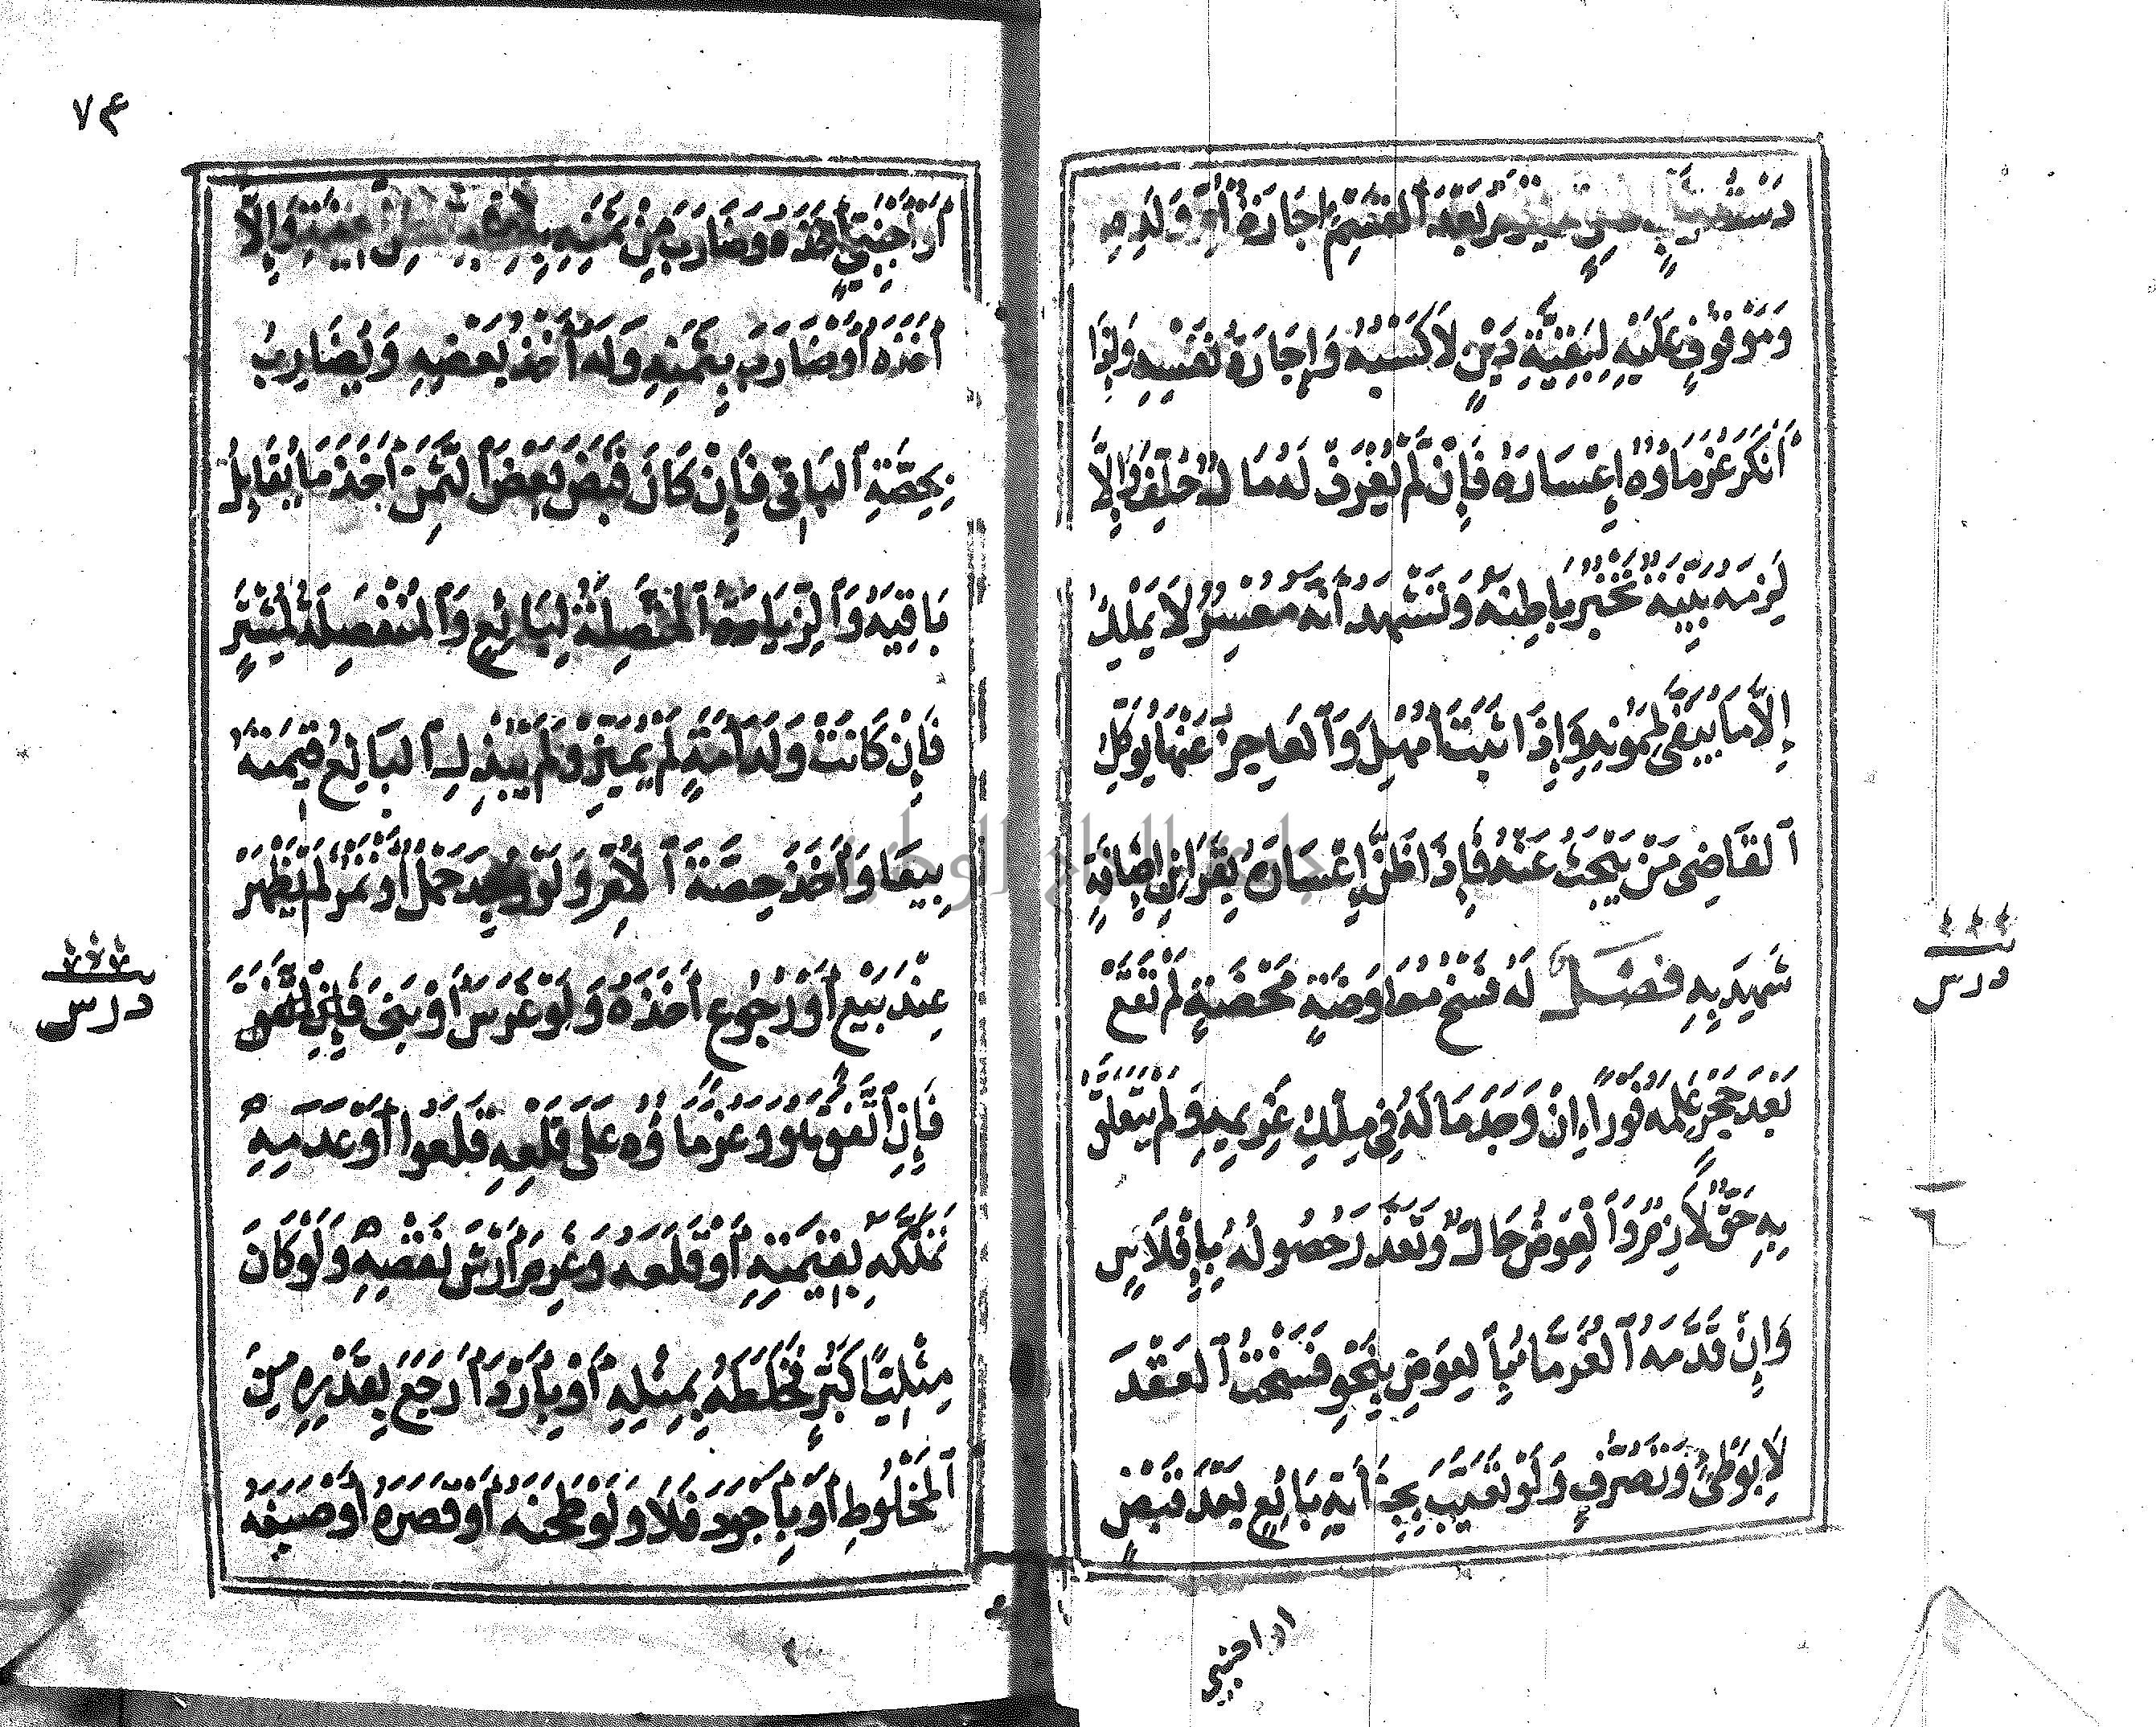 دَسْتُ ثَوْبٍ بَعْدَ القَسْمِ إِجَارَةُ أُمِّ وَلَدِهِ
وَمَوْقُوفٍ عَلَيْهِ لِبَقِيَّةِ دَيْنٍ لَا كَسْبُهُ وَإِجَارَةُ نَفْسِهِ وَإِذَا
أَنْكَرَ غُرَمَاؤُهُ إِعْسَارَهُ فَإِنْ لَمْ يُعْرَفْ لَهُ مَالٌ حُلِّفَ وَإِلَّا
لَزِمَهُ بَيِّنَةٌ تَخْبُرُ بَاطِنَهُ وَتَشْهَدُ أَنَّهُ مُعْسِرٌ لَا يَمْلِكُ
إِلَّا مَا يَبْقَى لِمَمُونِهِ وَإِذَا ثَبَتَ أُمْهِلَ وَالعَاجِزُ عَنْهَا يُوَكِّلُ
القَاضِي مَنْ يَبْحَثُ عَنْهُ فَإِذَا ظَنَّ إِعْسَارَهُ بِقَرَائِنِ إِضَاقَةٍ
شَهِدَ بِهِ فصل لَهُ فَسْخُ مُعَاوَضَةٍ مَحْضَةٍ لَمْ تَقَعْ
بَعْدَ حَجْرٍ عَلِمَهُ فَوْرًا إِنْ وَجَدَ مَالَهُ فِي مِلْكِ غَرِيمِهِ وَلَمْ يَتَعَلَّقْ
بِهِ حَقٌّ لَازِمٌ وَالعِوَضُ حَالٌّ وَتَعَذَّرَ حُصُولُهُ بِإِفْلَاسٍ
وَإِنْ قَدَّمَهُ الغُرَمَاءُ بِالعِوَضِ بِنَحْوِ فَسَخْتُ العَقْدَ
لَا بِوَطْئٍ وَتَصَرُّفٍ وَلَوْ تَعَيَّبَ بِجِنَايَةِ بَائِعٍ بَعْدَ قَبْضٍ
او اجنبي
درس
٧٤
أَوْ أَجْنَبِيٍّ أَخَذَهُ وَضَارَبَ مِنْ ثَمَنِهِ بِنِسْبَةِ وَإِلَّا
أَخَذَهُ أَوْ ضَارَبَ بِثَمَنِهِ وَلَهُ أَخْذُ بَعْضِهِ وَيُضَارِبُ
بِحِصَّةِ البَاقِي فَإِنْ كَانَ قَبَضَ بَعْضَ الثَّمَنِ أَخَذَ مَا يُقَابِلُ
بَاقِيَهُ وَالزِّيَادَةُ المُتَّصِلَةُ لِبَائِعٍ وَالمُنْفَصِلَةُ لِمُشْتَرٍ
فَإِنْ كَانَتْ وَلَدَ أَمَةٍ لَمْ يُمَيِّزْ وَلَمْ يَبْذُلِ البَائِعُ قِيمَتَهُ
بِيعَا وَأَخَذَ حِصَّةَ الأُمِّ وَلَوْ وُجِدَ حَمْلٌ أَوْ ثَمَرٌ لَمْ يَظْهَرْ
عِنْدَ بَيْعٍ أَوْ رُجُوعٍ أَخَذَهُ وَلَوْ غَرَسَ أَوْ بَنَى فَإِنِ اتَّفَقَ
فَإِنِ اتَّفَقَ هُوَ وَغُرَمَاؤُهُ عَلَى قَلْعِهِ قَلَعُوا أَوْ عَدَمِهِ
تَمَلَّكَهُ بِقِيمَتِهِ أَوْ قَلَعَهُ وَغَرِمَ أَرْشَ نَقْصِهِ وَلَوْ كَانَ
مِثْلِيًّا كَبُرٍّ فَخَلَطَهُ بِمِثْلِهِ أَوْ بِأَرْدَأَ رَجَعَ بِقَدْرِهِ مِنَ
المَخْلُوطِ أَوْ بِأَجْوَدَ فَلَا وَلَوْ طَحَنَهُ أَوْ قَصَرَهُ أَوْ صَبَغَهُ
درس